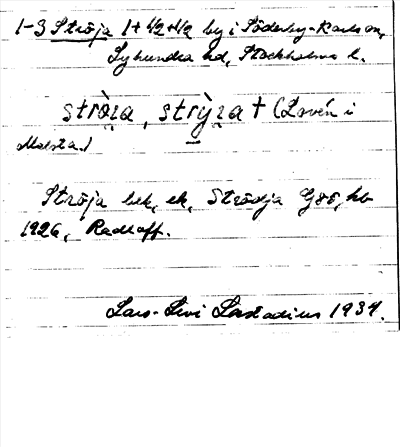 1-3 Ströja 1 + 1/2 + 1/2 by i Söderby-Karls sn,
Lyhundra hd, Stockholms l.
strö̀ɪa, strỳɪa + (Lovén i
Malsta.)
Ströja bek, ek, Strödja Göö, hb
1926, Radloff.
Lars-Levi Læstadius 1934.